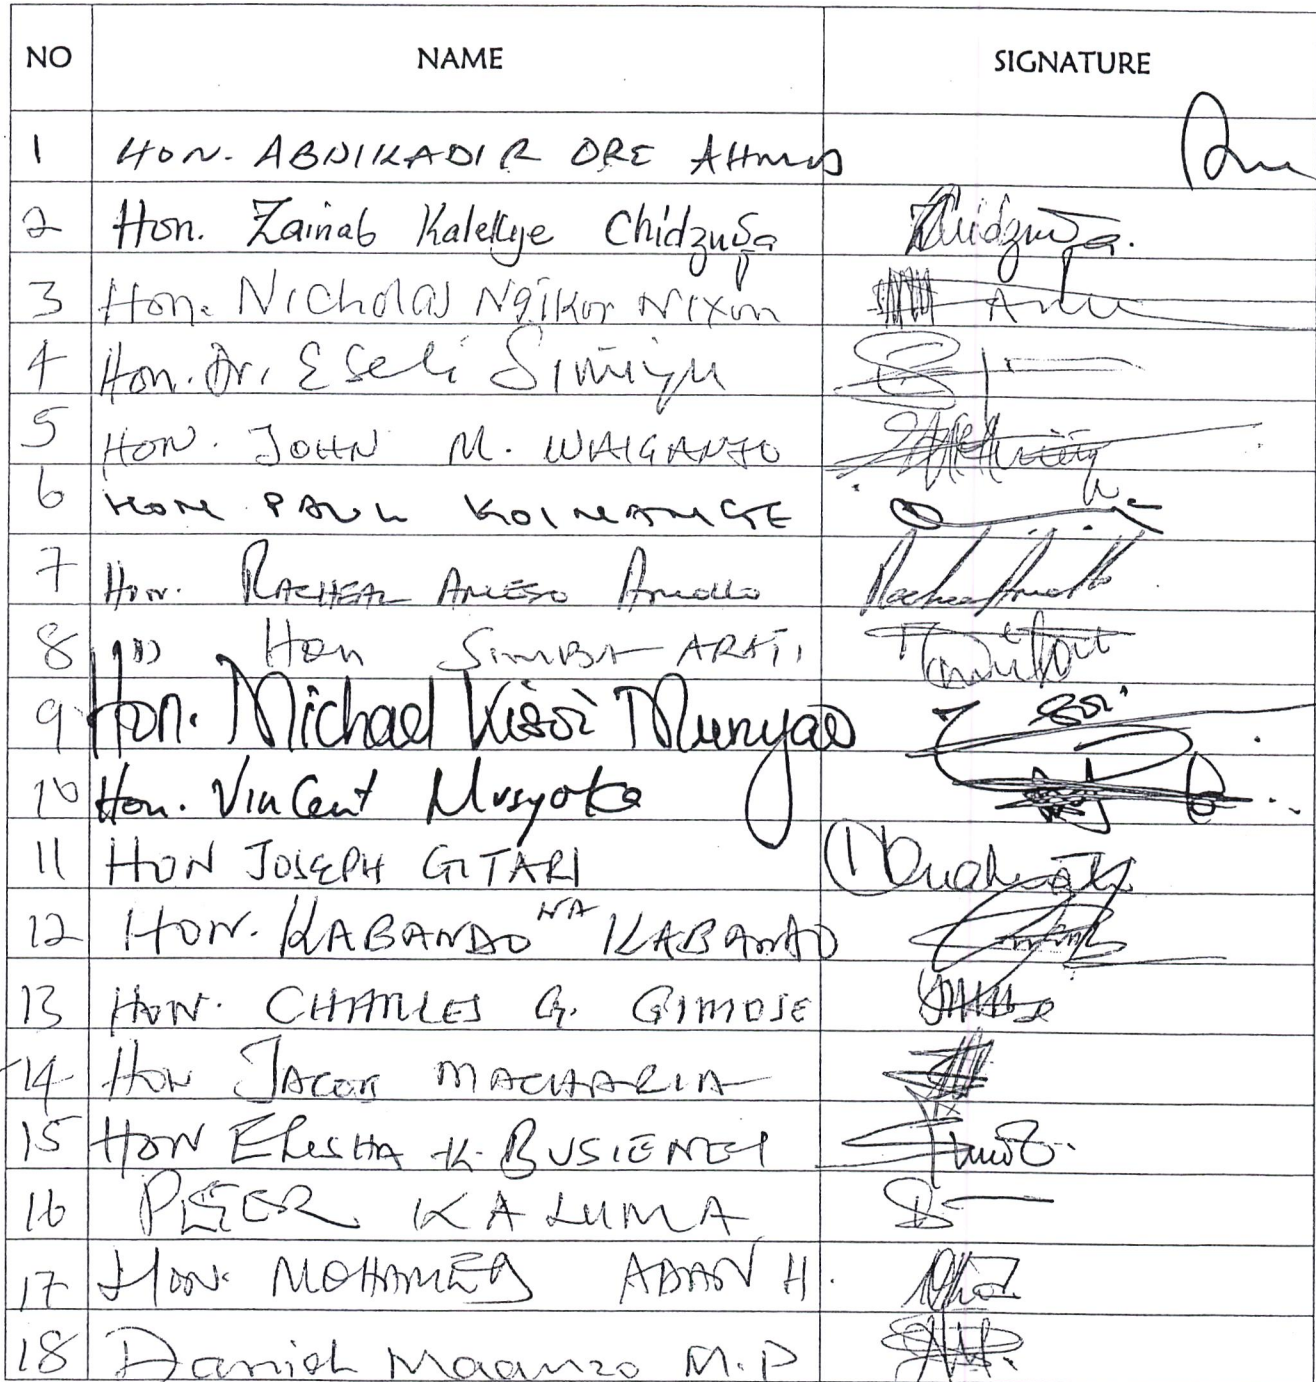 NO NAME SIGNATURE
1 HON. ABDIKADIR ORE AHMED
2 Hon. Zainab Kalekye Chidzuga Chidzuga.
3 Hon. Nicholas Ngikor Nixon
4 Hon. Dr. Eseli Simiyu
5 HON. JOHN M. WAIGANJO
6 HON PAUL KOINANGE
7 Hon. RACHEAL AMESO Amollo
8 Hon SIMBA ARATI
9 Hon. Michael Kisoi Munyao
10 Hon. Vincent Musyoka
11 HON JOSEPH GITARI
12 HON. KABANDO NA KABANDO
13 HON. CHARLES G. GIMOSE
14 HON JACOB MACHARIA
15 HON ELISHA K. BUSIENEI
16 PETER KALUMA
17 HON. MOHAMED ADAN H.
18 Daniel Maanzo M.P